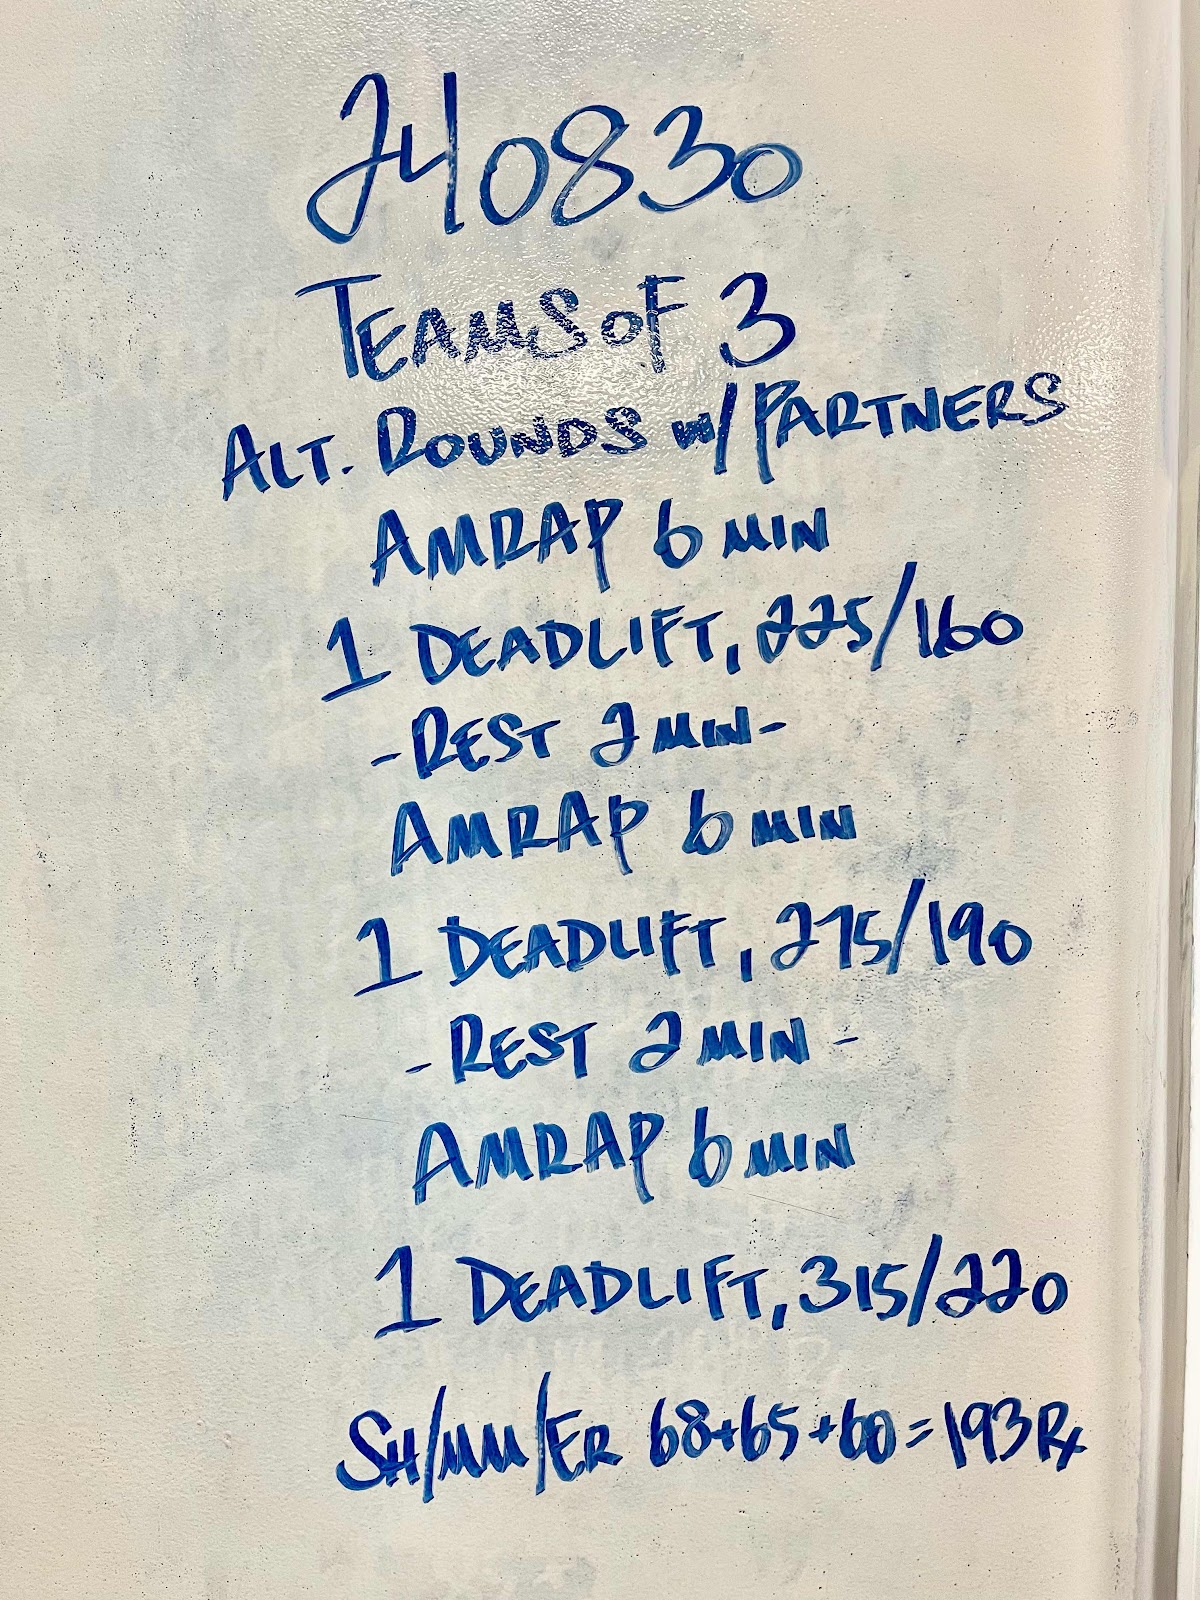 240830
TEAMS OF 3
ALT. ROUNDS w/ PARTNERS
AMRAP 6 MIN
1 DEADLIFT, 225/160
-REST 2 MIN-
AMRAP 6 MIN
1 DEADLIFT, 275/190
-REST 2 MIN-
AMRAP 6 MIN
1 DEADLIFT, 315/220
SH/MM/ER 68+65+60=193 Rx